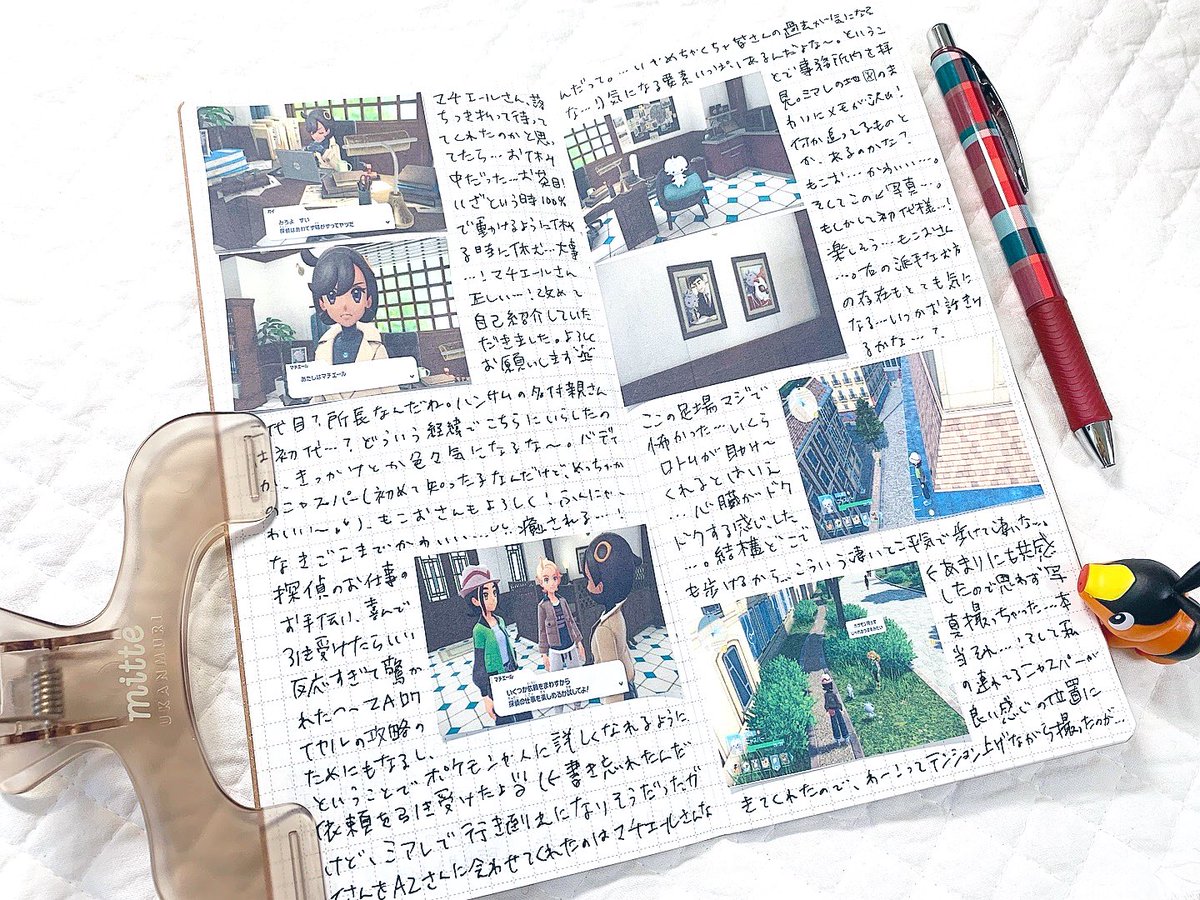 マチエールさん、落
ちつき払って待って
てくれたのかと思っ
てたら…お休み
中だった…お茶目!
いざという時100%
で動けるように休め
る時に休む…大事
…!マチエールさん
正しい…!改めて
自己紹介していた
だきました。よろしく
お願いします
カイ
おちよ すい
マチエール
あたしはマチエール
代目?所長なんだね。ハンサムの名付親さん
初代…?どういう経緯でこちらにいらしたの
か、きっかけとか色々気になるな〜。バディ
のニャスパー(初めて知った子なんだけど、めっちゃか
わいい〜。)、もこおさんもよろしく!ふんにゃ、
なきごえまでかわいい…癒される…!
探偵のお仕事の
お手伝い、喜んで
引き受けたらいい
反応すぎて驚か
れたってA ロワ
イヤルの攻略の
ためにもなるし、
ということでポケモンや人に詳しくなれるように
依頼を引き受けたよ(←書き忘れたんだ
けど、ミアレで行き倒れになりそうだったガ
イさんをAZさんに会わせてくれたのはマチエールさんな
マチエール
いくつか依頼をまわすから
探偵の仕事を楽しめるか試してよ!
んだって。…いやめちゃくちゃ皆さんの過去が気になる
な…!)気になる要素いっぱいあるんだよな〜。というこ
とで事務所内を拝
見。ミアレの地図のま
わりにメモが沢山!
何か追ってるものと
か、あるのかな?
もこお…かわいい…。
そしてこの写真…。
もしかして初代様…!
楽しそう…もこおさん
…。右の派手なお方
の存在もとても気に
なる…いつかお話きけ
るかな…?
この足場マジで
怖かった…いくら
ロトムが助け〜
くれるとはいえ
…心臓がドク
ドクする感じした
…。結構どこで
も歩けるから、こういう凄いとこ平気で歩けて凄いな…。
←あまりにも共感
したので思わず写
真撮っちゃった…本
当それ…!そして私
の連れてるニャスパーが
良い感じの位置に
きてくれたので、わーってテンション上げながら撮ったのが…
mitte
UKANMURI